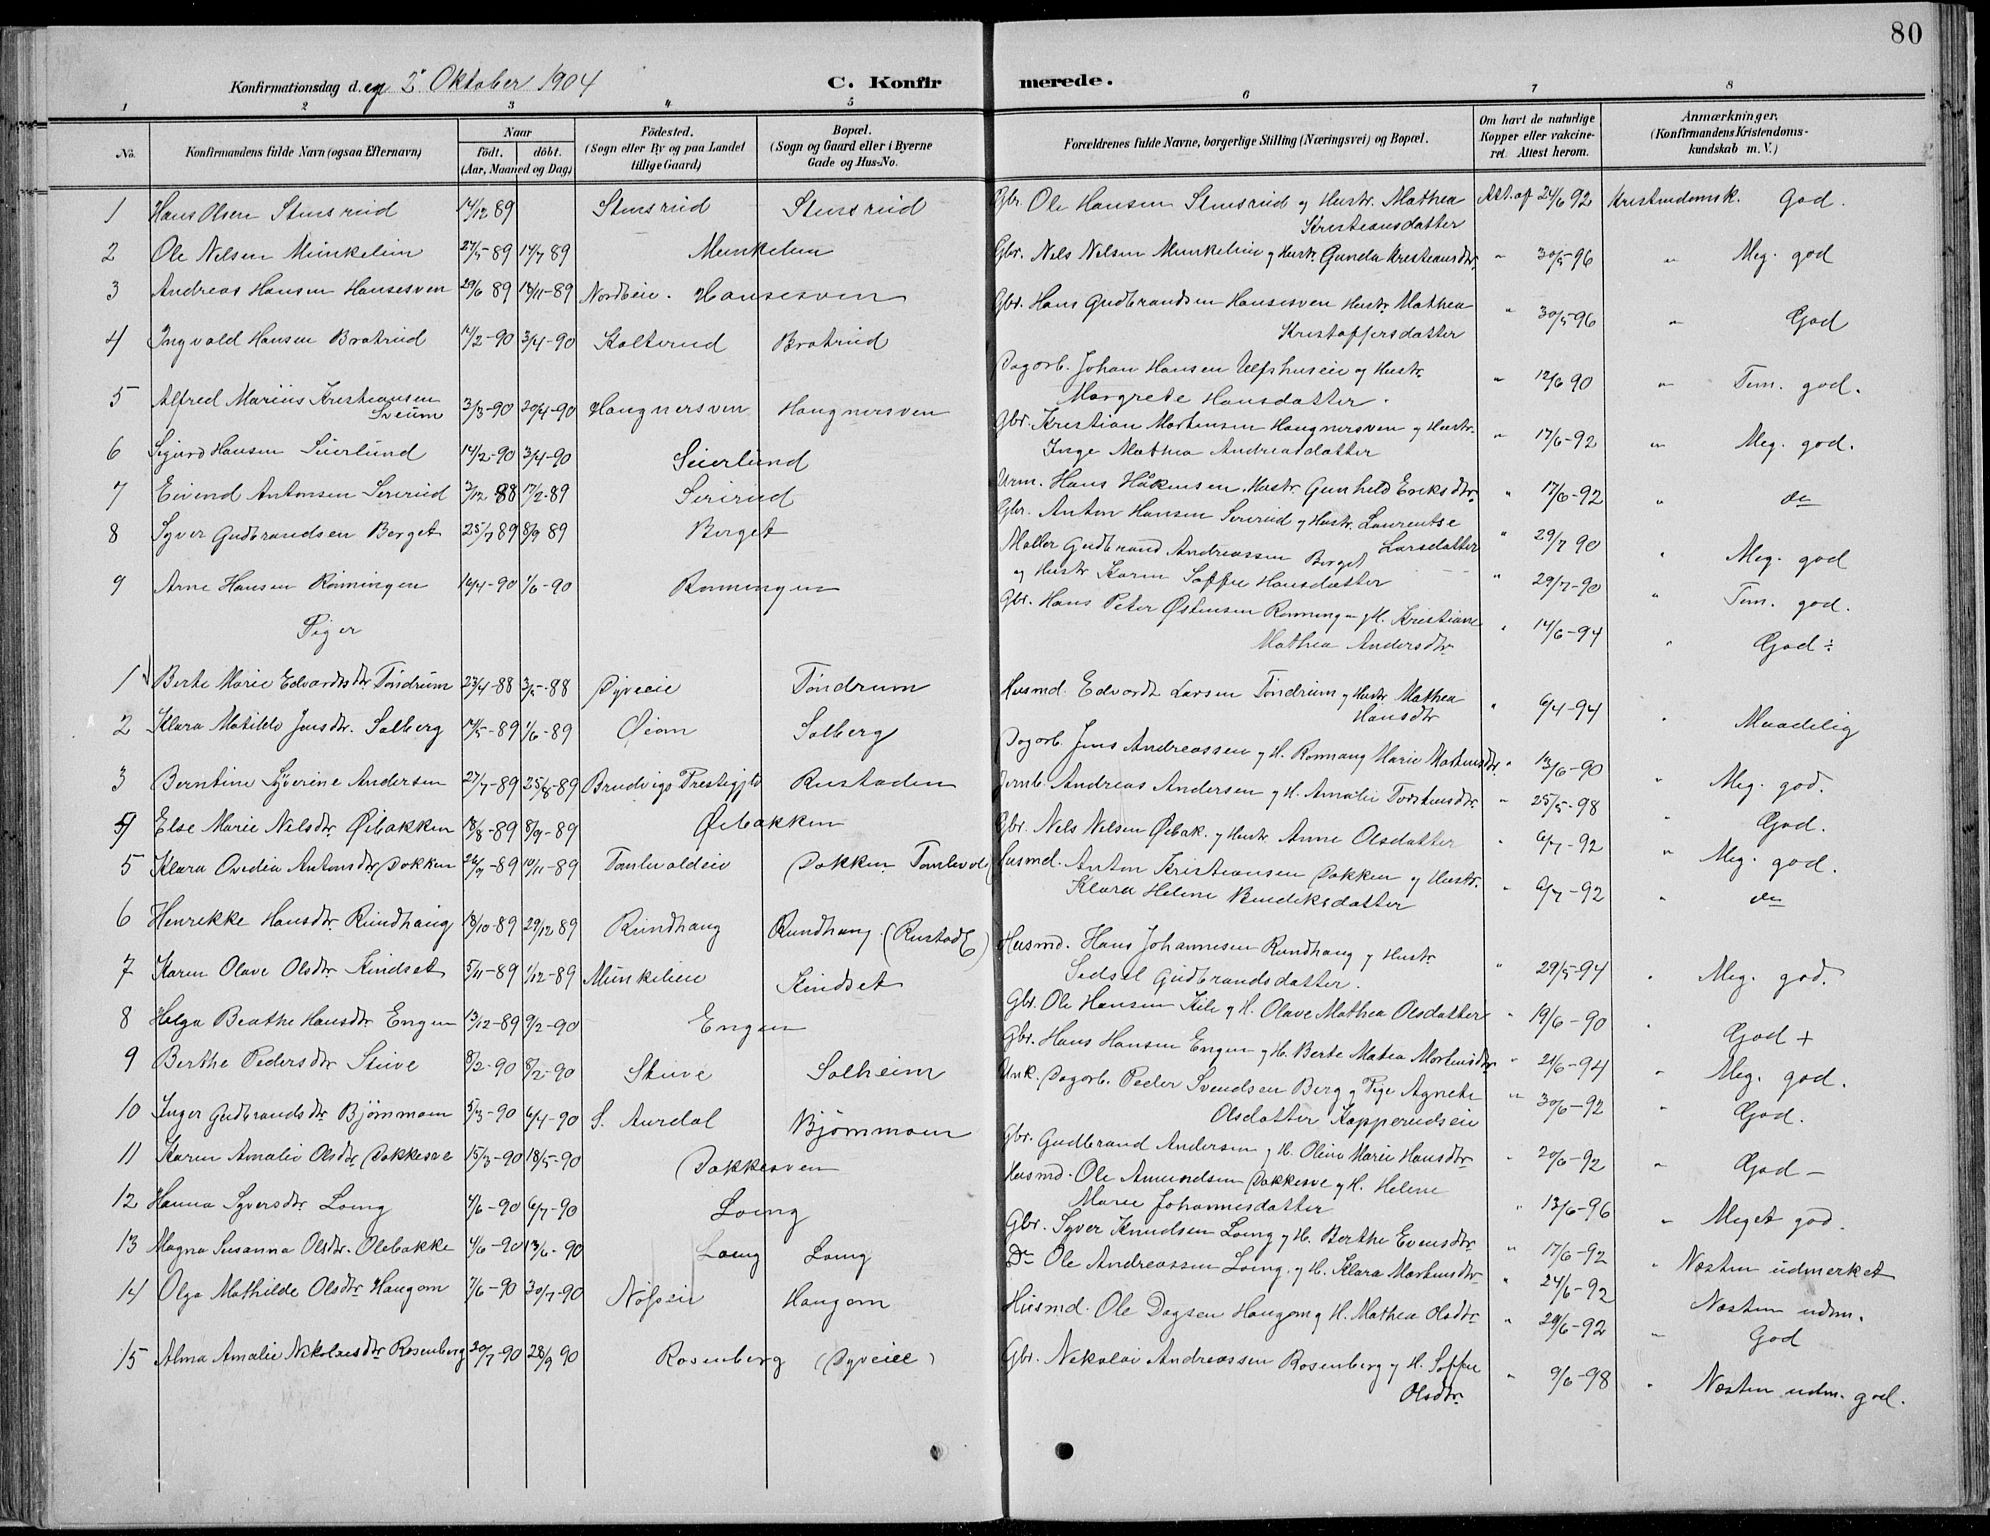 80
Konfirmationsdag d. en 2. Oktober 1904
C. Konfirmerede.
1 2 3 4 5 6 7 8
No.
Konfirmandens fulde Navn (ogsaa Efternavn)
Naar
födt. döbt.
(Aar, Maaned og Dag)
Födested.
(Sogn eller By og paa Landet
tillige Gaard)
Bopæl.
(Sogn og Gaard eller i Byerne
Gade og Hus-No.
Forældrenes fulde Navne, borgerlige Stilling (Næringsvei) og Bopæl.
Om havt de naturlige
Kopper eller vakcine-
ret. Attest herom.
Anmærkninger.
(Konfirmandens Kristendoms-
kundskab m. V.)
1 Hans Olsen Stensrud 14/12 89 Stensrud Stensrud Gbr. Ole Hansen Stensrud og Hustr. Mathea Att. af 24/6 92 Kristendomsk. God.
Kristiansdatter
2 Ole Nelsen Munkelien 27/5-89 14/7 89 Munkelien Gbr. Nels Nelsen Munkelien og Hustr. Gunda Kristiansdtr. " 30/5-96 " Meg. god
3 Andreas Hansen Hansesven 29/6 89 18/11-89 Nordeie. Hansesven Gbr. Hans Gudbrandsen Hansesven Hustr. Mathea
Kristoffersdatter " 30/5-96 " God
4 Ingvald Hansen Bratrud 14/2-90 3/4-90 Kolterud Bratrud Dagarb. Johan Hansen Ulfshuseie og Hustr.
Margrete Hansdatter. " 12/6 90 " Tem. god.
5 Alfred Marius Kristiansen
Sveum 3/3-90 20/4-90 Haugnersven Haugnersven Gbr. Kristian Martinsen Haugnersven og Hustr.
Inge Mathea Andreasdatter " 17/6-92 " Meg. god.
6 Sigurd Hansen Seierlund 14/2-90 3/4-90 Seierlund Urm. Hans Håkensen, Hustr. Gunhild Eriksdtr. " 17/6-92 " do
7 Eivend Antonsen Sererud 3/12 88 17/2-89 Sererud Gbr. Anton Hansen Sererud og Hustr. Laurentse
Larsdatter " 29/7 90 " Meg. god
8 Syver Gudbrandsen Berget 25/7 89 8/9 89 Berget Møller Gudbrand Andreassen Berget
og Hustr. Karen Soffie Hansdatter " 29/7-90 " Tem. god.
9 Arne Hansen Rønningen 16/4-90 1/6-90 Rønningen Gbr. Hans Peter Østensen Rønningen og H. Kristiane
Mathea Andersdtr. " 14/6-94 " God ÷
Piger
1 Berte Marie Edvardsdtr. Tøndrum 23/4-88 3/5-88 Dyveeie Tøndrum Husmd. Edvardt Larsen Tøndrum og Hustr. Mathea
Hansdtr " 6/4-94 " Maadelig
2 Klara Matilde Jensdtr. Solberg 17/5-89 1/6-89 Øiom Solberg Dagarb. Jens Andreassen og H. Rønnaug Marie Martinsdtr. " 13/6-90 " Meg. god.
3 Berntine Syverine Andersen 27/7-89 25/8-89 Bruvigs Prestegjld Rustaden Jernb. Andreas Andersen og H. Amalie Torstensdtr. " 25/5-98 " God.
4 Else Marie Nilsdtr. Øibakken 18/8-89 8/9-89 Øibakken Gbr. Nels Nelsen Øibak. og Hustr. Anne Olsdatter " 6/7-92 " Meg. god.
5 Klara Ovedia Antonsdtr. Dokken 22/9-89 10/11-89 Tomlevoldeie Dokken Tomlevold Husmd. Anton Kristiansen Dokken og Hustr.
Klara Helene Bendiksdatter " 6/7-92 " do
6 Henrekke Hansdtr. Rundhaug 18/10-89 29/12 89 Rundhaug Rundhaug. (Rustad) Husmd. Hans Johannesen Rundhaug og Hustr.
Sedsel Gudbrandsdatter. " 29/5-94 " Meg. god.
7 Karen Olave Olsdtr. Kindset 5/11-89 1/12-89 Munkelien Kindset Gbr. Ole Hansen Kile og H. Olave Mathea Olsdatter " 19/6-90 " God +
8 Helga Beathe Hansdtr. Engen 13/12-89 9/2-90 Engen Gbr. Hans Hansen Engen og H. Berte Matea Mortensdtr. " 21/6-94 " Meg. god.
9 Berthe Pedersdtr. Skuve 8/2-90 8/2-90 Skuve Solheim Unk. Dagarb. Peder Svendsen Berg og Pige Agnete
Olsdatter Kopperudseie " 30/6-92 " God.
10 Inger Gudbrandsdtr. Bjømmoen 5/3-90 6/4-90 S. Aurdal Bjømmoen Gbr. Gudbrand Andersen og H. Oline Marie Hansdtr. " 20/6-92 " God -
11 Karen Amalie Olsdtr. Dokkesve 15/3-90 18/5-90 Dokkesven Husmd. Ole Amundsen Dokkesve og H. Helene
Marie Johannesdatter " 13/6-96 " Meget god.
12 Hanna Syversdtr. Loeng 4/6-90 6/7-90 Loeng Gbr. Syver Knudsen Loeng og H. Berthe Evensdtr. " 17/6-92 " Næsten udmerket
13 Magna Susanna Olsdtr. Olebakke 4/6-90 13/6-90 Loeng Loeng Do Ole Andreassen Loeng. og H. Klara Martinsdtr. " 24/6-92 Næsten udm.
14 Olga Mathilde Olsdtr. Haugom 7/6-90 30/7-90 Nøsseie Haugom Husmd. Ole Dagsen Haugom og H. Mathea Olsdtr. " 29/6-92 " God
15 Alma Amalie Nikolaisdtr. Rosenberg 20/7-90 28/9 90 Rosenberg (Dyveeie) Gbr. Nikolai Andreassen Rosenberg og H. Soffie
Olsdtr. " 9/6-98 " Næsten udm. god.